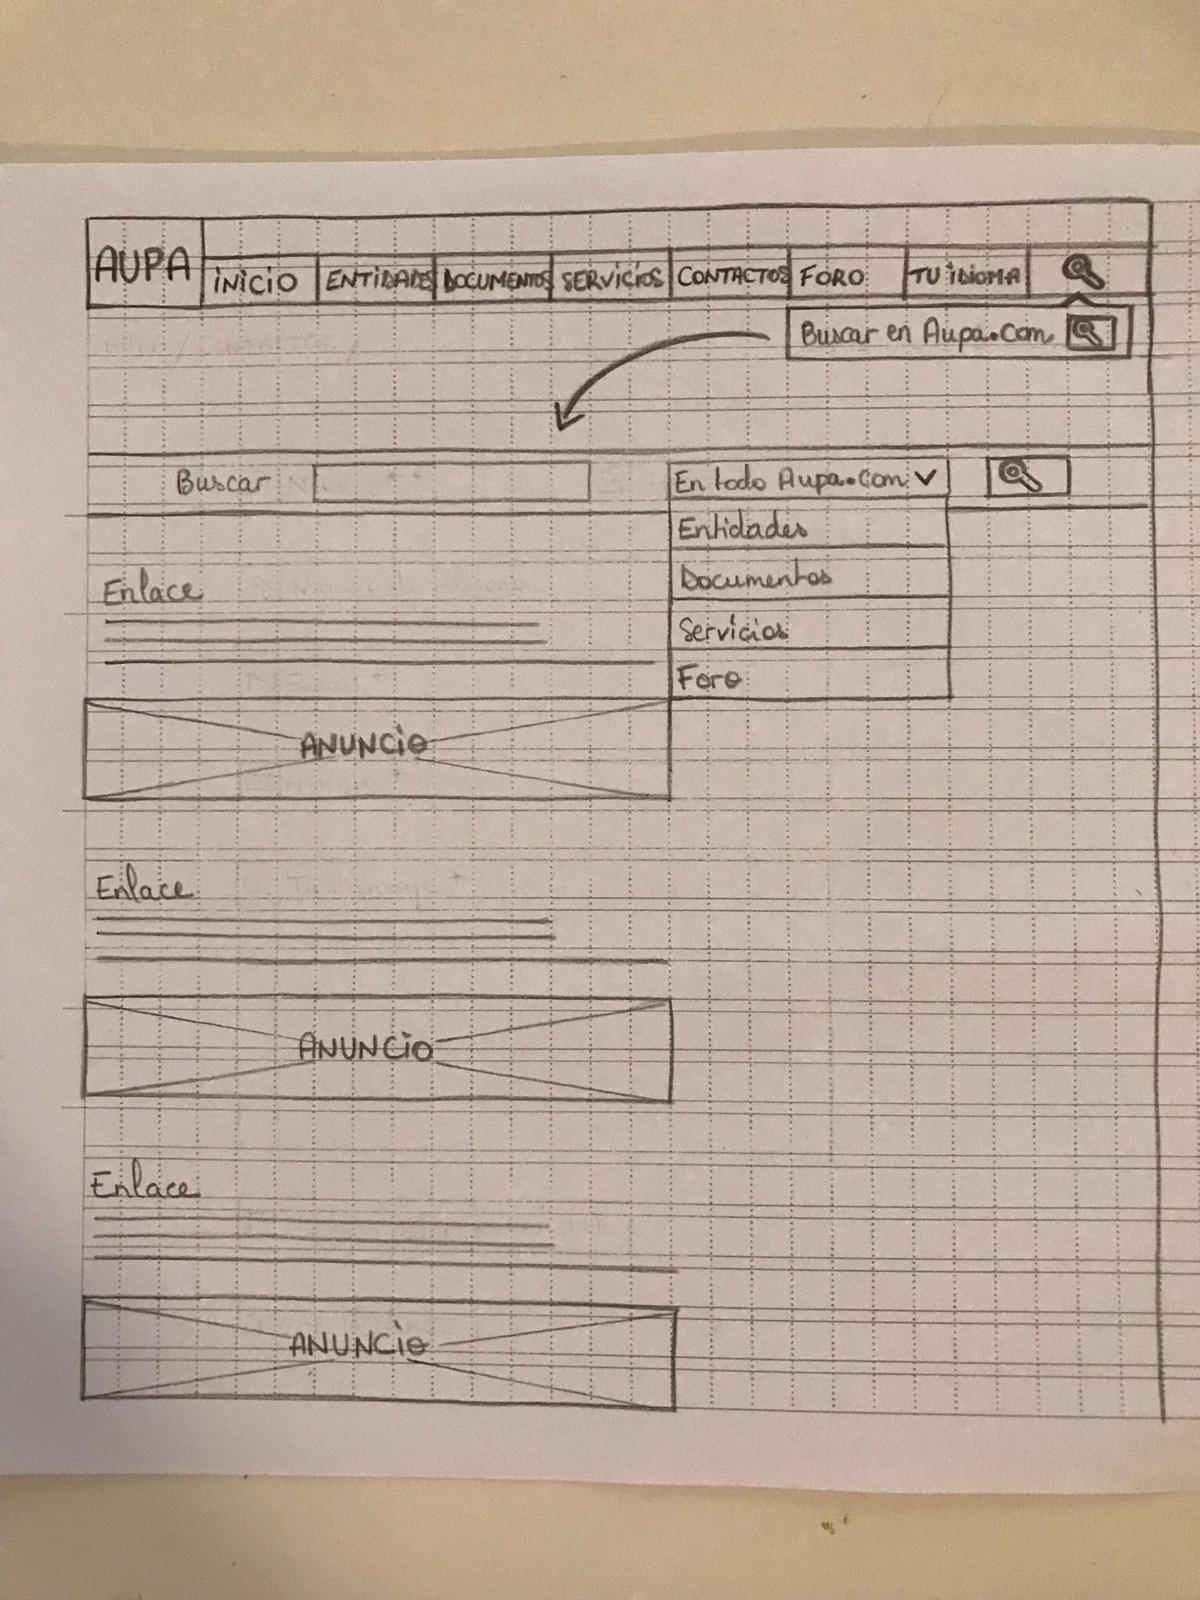 AUPA
INICIO ENTIDADES DOCUMENTOS SERVICIOS CONTACTOS FORO TU IDIOMA
Buscar en Aupa.com
Buscar En todo Aupa.com
Entidades
Documentos
Servicios
Foro
Enlace
ANUNCIO
Enlace
ANUNCIO
Enlace
ANUNCIO